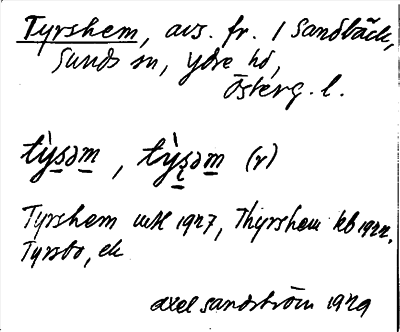 Tyrshem, avs. fr. 1 Sandbäck,
Sunds sn, Ydre hd,
Österg. l.
tỳsəm, tỳṣəm (r)
Tyrshem 1927, Thyrshem kb 1922,
Tyrsbo, ek
Axel Sandström 1929